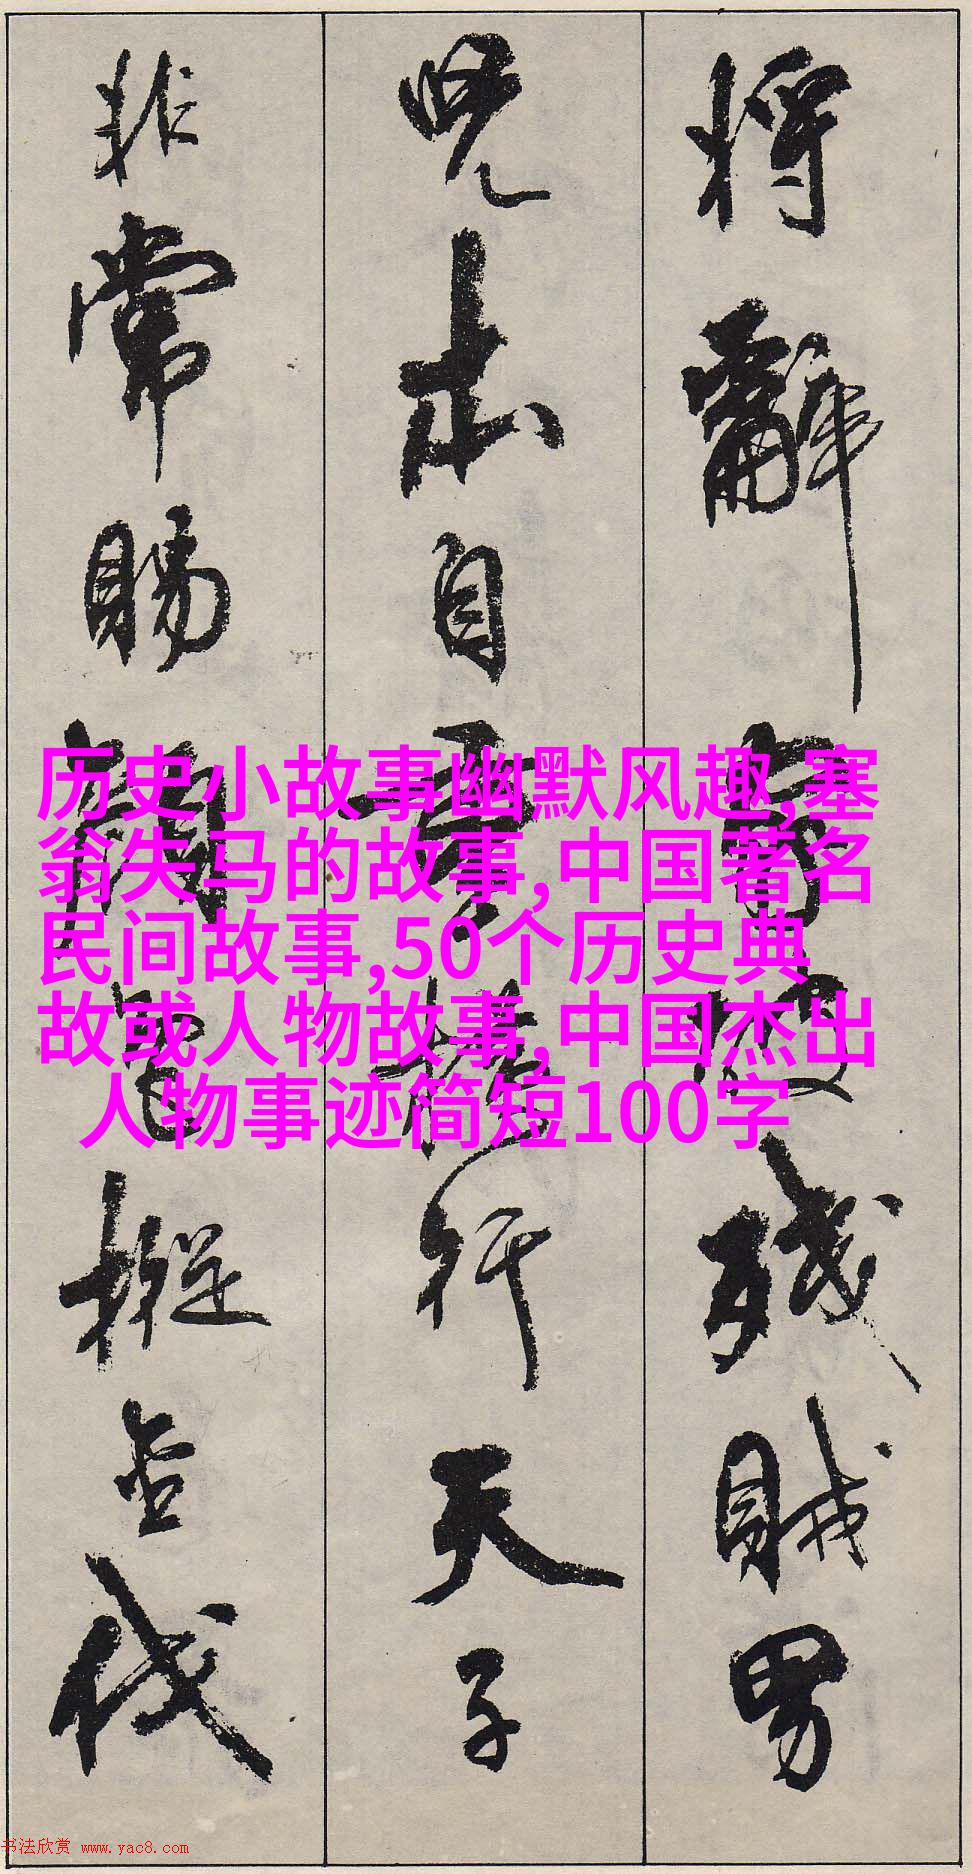 將辭家破殘賊男
兒本自重横行天子
非常賜顏色摐金伐
历史小故事幽默风趣,塞
翁失马的故事,中国著名
民间故事,50个历史典
故或人物故事,中国杰出
人物事迹简短100字
书法欣赏 www.yac8.com